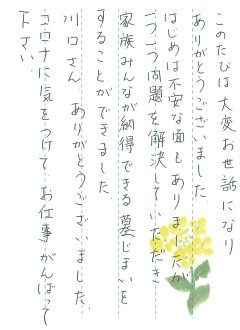 このたびは大変お世話になり
ありがとうございました
はじめは不安な面もありましたが
一つ一つ問題を解決していただき
家族みんなが納得できる墓じまいを
することができました
川口さん　ありがとうございました。
コロナに気をつけて　お仕事がんばって
下さい